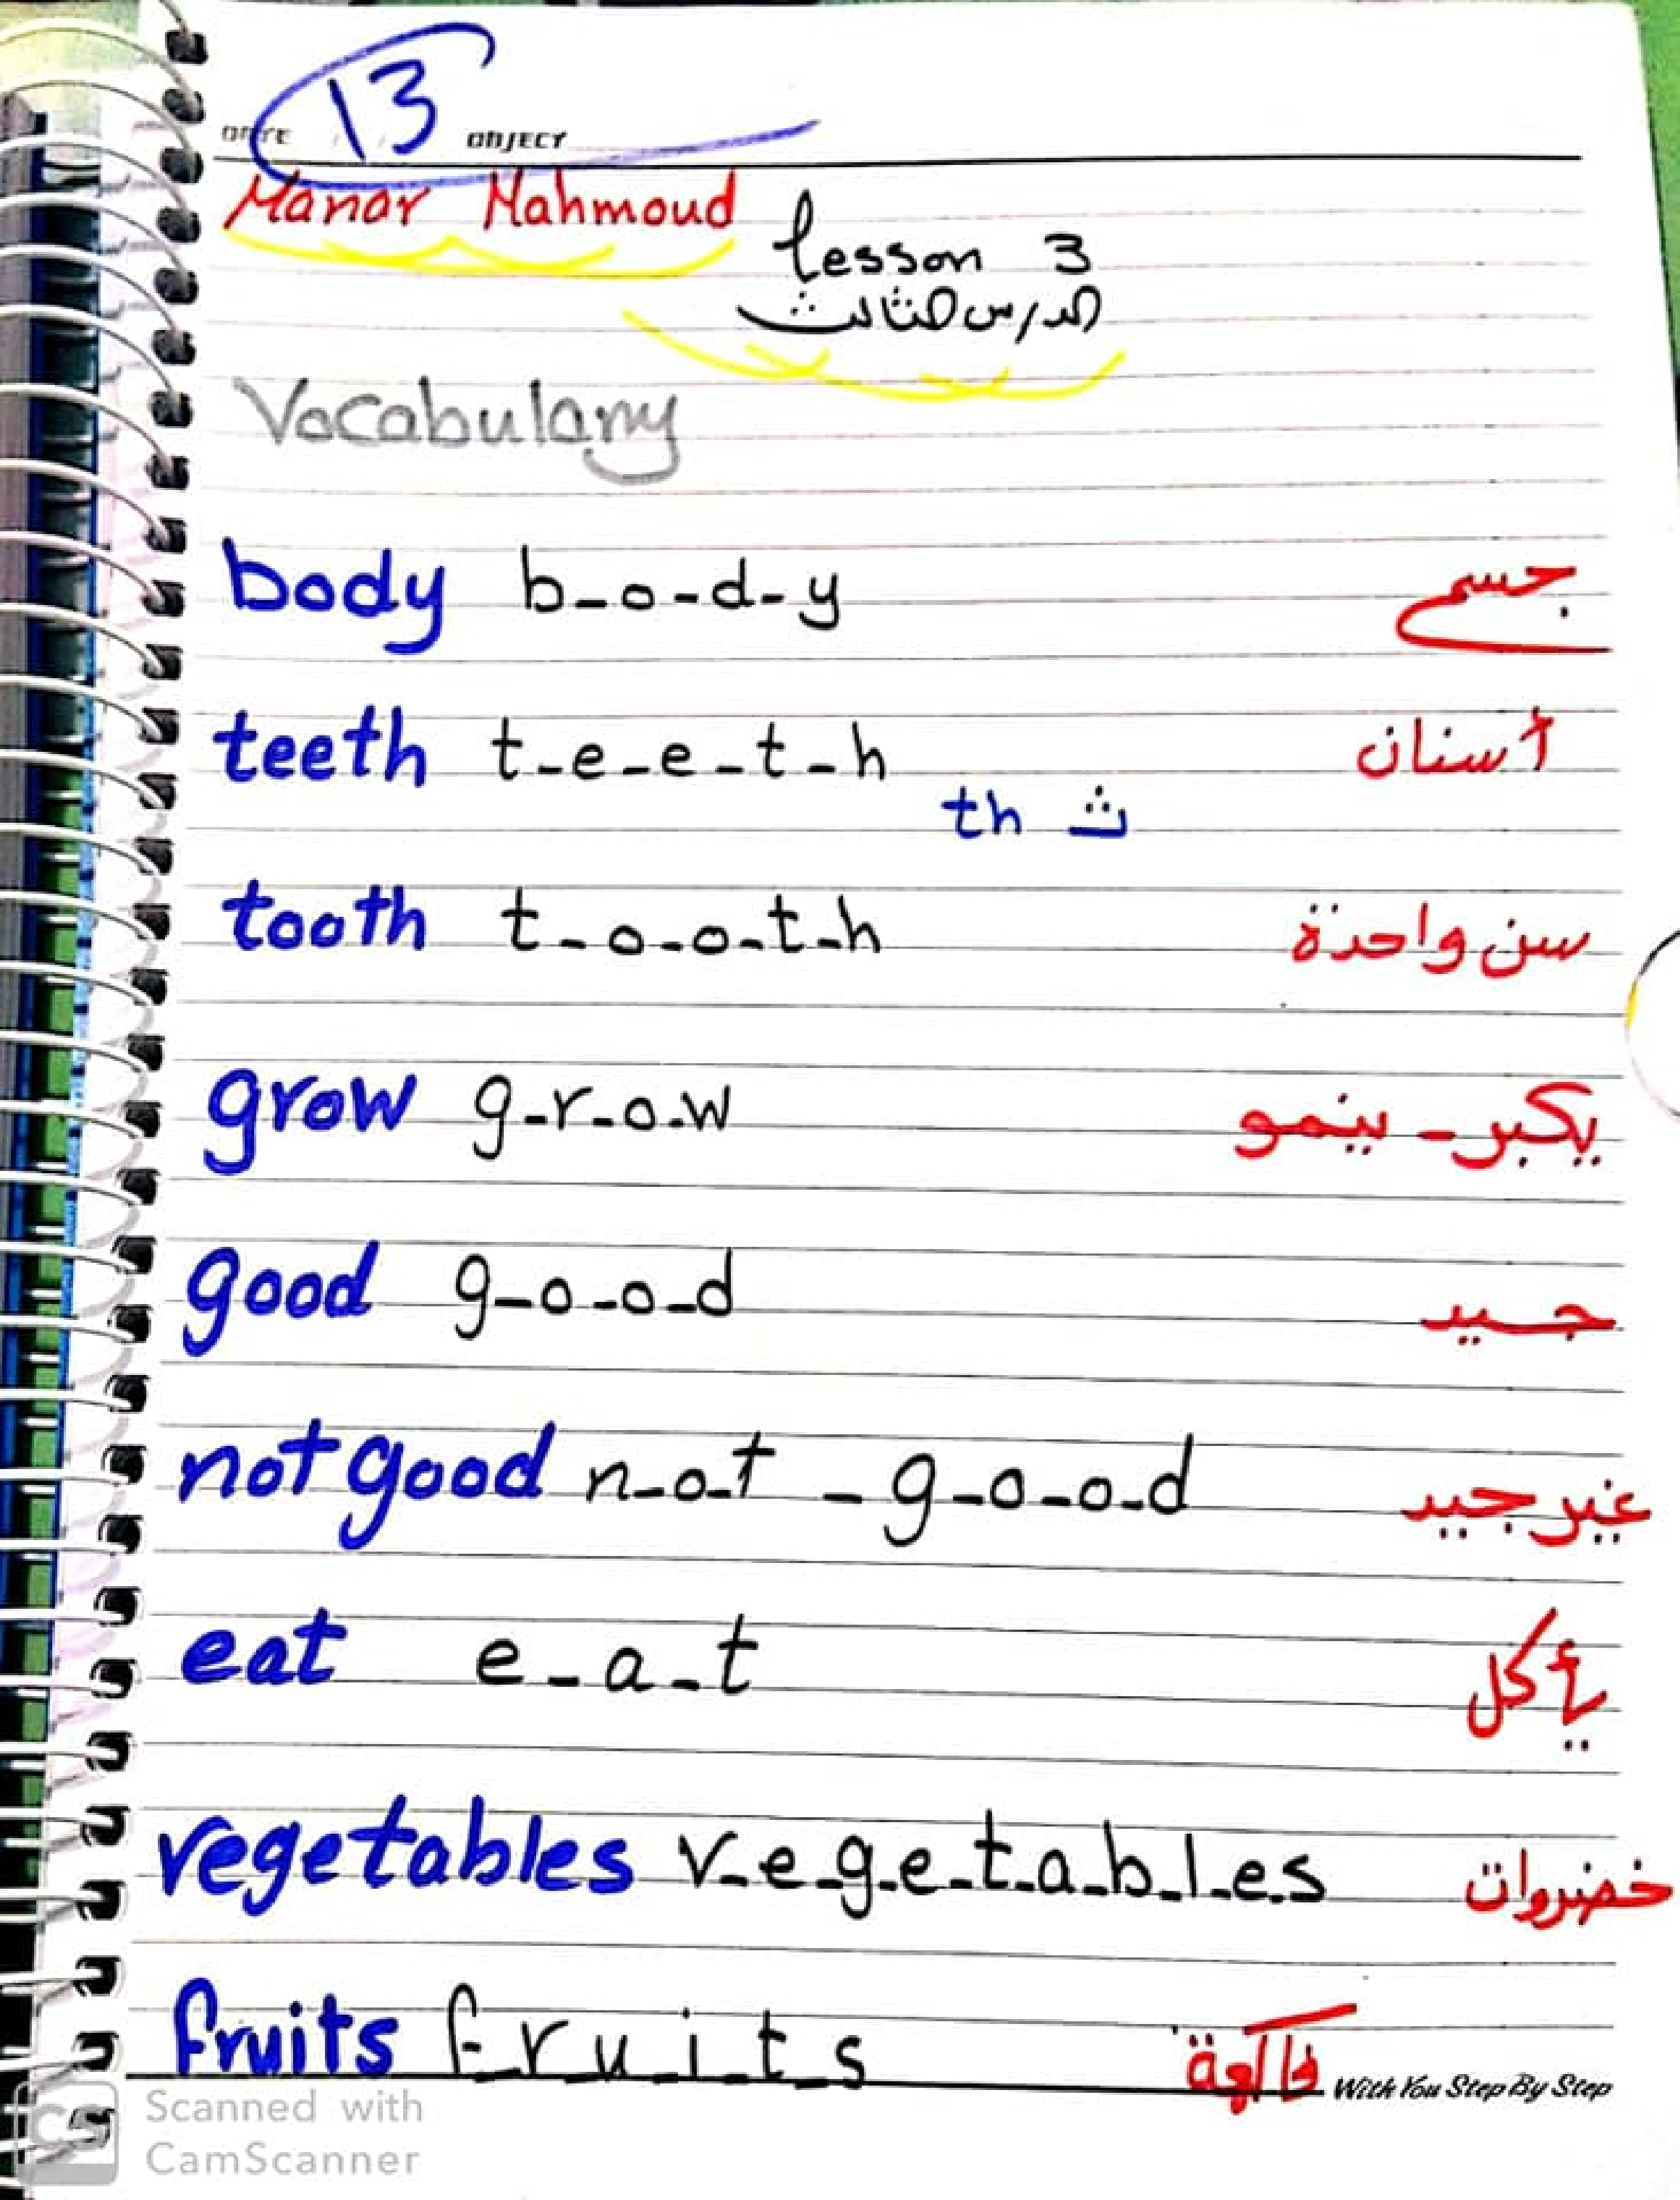 13
DATE / / OBJECT
Manar Mahmoud
lesson 3
الدرس الثالث
Vocabulary
body b-o-d-y جسم
teeth t-e-e-t-h أسنان
th ث
tooth t-o-o-t-h سن واحدة
grow g-r-o-w يكبر - ينمو
good g-o-o-d جيد
not good n-o-t - g-o-o-d غير جيد
eat e-a-t يأكل
vegetables v-e-g-e-t-a-b-l-e-s خضروات
fruits f-r-u-i-t-s فاكهة
With You Step By Step
CS Scanned with
CamScanner